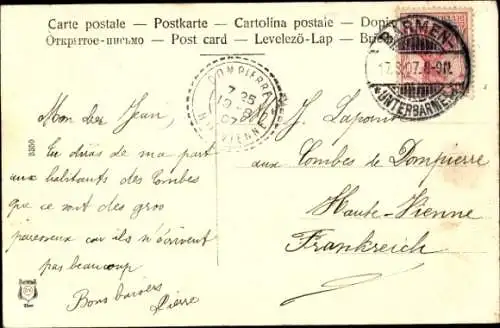 Carte postale — Postkarte — Cartolina postale — Dopis
Открытое-письмо — Post card — Levelező-Lap — Brie
BARMEN
17. 07. 8-9N.
*UNTERBARMEN
DOMPIERRE
7 25
19
07
HTE VIENNE
Mon cher Jean,
Tu diras de ma part
aux habitants des Combes
que ce sont des gros
paresseux car ils n'écrivent
pas beaucoup
Bons baisers
Pierre
J. Lapointe
aux Combes de Dompierre
Haute-Vienne
Frankreich